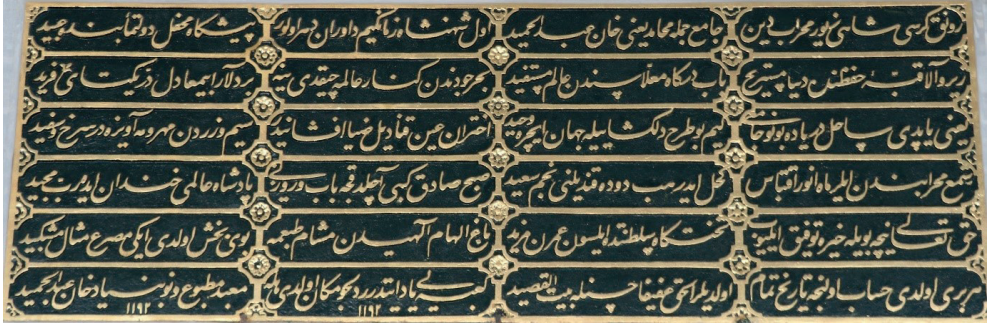 رونق كرسی شاهی نور محراب دین جامع جمله محامد یعنی خان عبد الحمید اول شهنشاه زمان كیم داوران دهر اولور پیشكاه محفل دولتمآبنده عبید
زیر والا قبۀ حفظنده دنیا مستریح باب دركاه معلاسندن عالم مستفید بحر جودندن كنار عالمه چقدی ینه بر دلارا در یكتای فرید
یعنی یاپدی ساحل دریاده بو نو جامعی كیم بو طرح دلكشا ایله جهان ایچره وحید اختران عین قنادیل ضیا افشانیدر سیم و زردن مهر و مه آویزه در سرخ و سفید
شمع محرابندن ایلر ماه انور اقتباس كحل ایدر هب دوده قندیلنی نجم سعید صبح صادق كبی آچلدقجه باب پادشاه عالمی خندان ایده رب مجید
حق تعالی نیجه بویله خیره توفیق ایلیوب تختكاه سلطنتده ایلسون عمرن مزید باغ الهام الهیدن مشام طبعمه بوی بخش اولدی ایكی مصرع مثال
هر بری اولدی حساب اولنجه تاریخ تمام اولدیلر الحق عفیفا حسنله بیت القصید كعبه یی یاد ایتدرر دلجو مكان اولدی بو ١١٩٢ معبد مطبوع و نو بنیاد خان عبد الحمید ١١٩٢